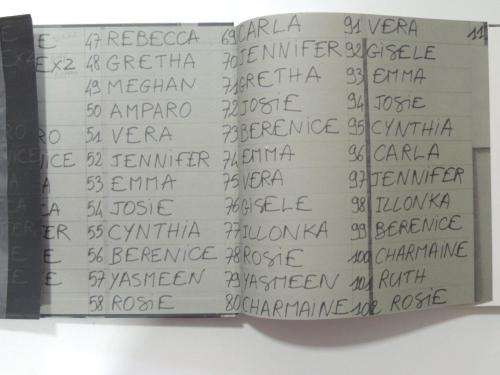 E 47 REBECCA 69 CARLA 91 VERA 11
EX2 48 GRETHA 70 JENNIFER 92 GISELE
49 MEGHAN 71 GRETHA 93 EMMA
50 AMPARO 72 JOSIE 94 JOSIE
RO 51 VERA 73 BERENICE 95 CYNTHIA
ICE 52 JENNIFER 74 EMMA 96 CARLA
A 53 EMMA 75 VERA 97 JENNIFER
LA 54 JOSIE 76 GISELE 98 ILLONKA
ER 55 CYNTHIA 77 ILLONKA 99 BERENICE
E 56 BERENICE 78 ROSIE 100 CHARMAINE
E 57 YASMEEN 79 YASMEEN 101 RUTH
58 ROSIE 80 CHARMAINE 102 ROSIE